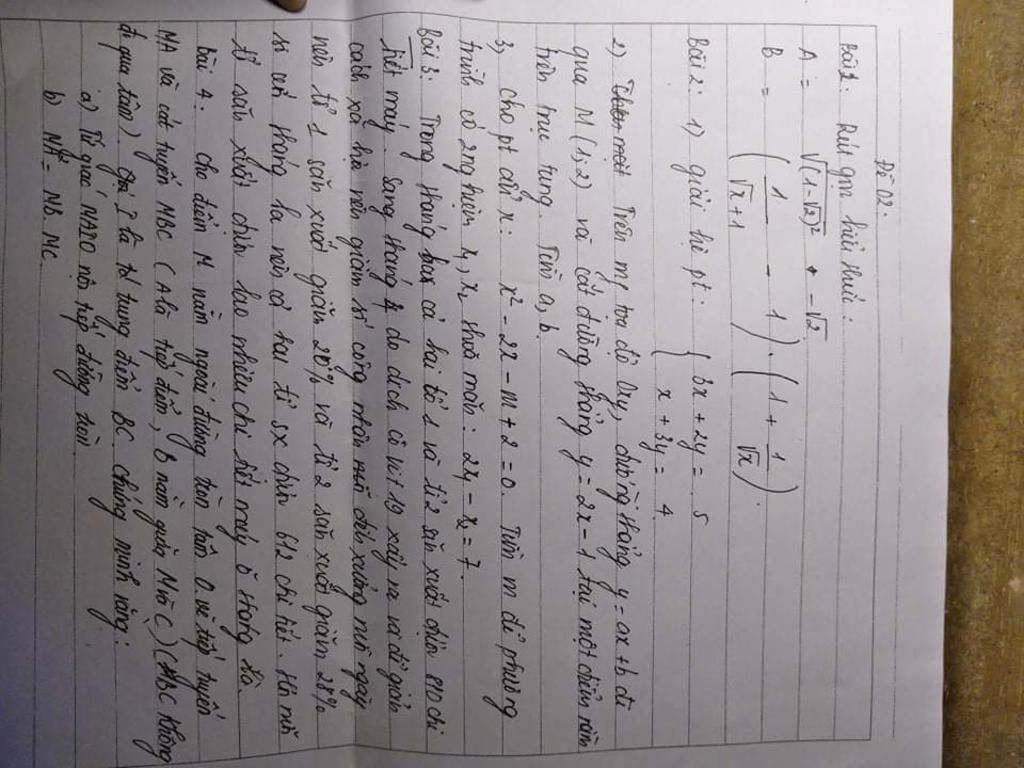 Đề 02:
Bài 1. Rút gọn biểu thức:
A = √(1-√2)² + -√2
B = (1/(√x+1) - 1) . (1 + 1/√x)
Bài 2: 1) giải hệ pt: { 3x + 2y = 5
x + 3y = 4
2) Trên mp tọa độ Oxy, đường thẳng y = ax + b đi
qua M(1;2) và cắt đường thẳng y = 2x - 1 tại một điểm nằm
trên trục tung. Tìm a, b.
3, cho pt ẩn x: x² - 2x - m + 2 = 0. Tìm m để phương
trình có 2 nghiệm x₁, x₂ thoả mãn: 2x₁ - x₂ = 7.
Bài 3: Trong tháng cả hai tổ 1 và tổ 2 sản xuất được chi
tiết máy. Sang tháng do dịch covit 19 xảy ra và để giãn
cách xã hội nên giảm số công nhân mỗi đến xưởng mỗi ngày
nên tổ 1 sản xuất giảm và tổ 2 sản xuất giảm 28%
so với tháng ba nên cả hai tổ sx được 612 chi tiết. Hỏi mỗi
tổ sản xuất được bao nhiêu chi tiết máy ở tháng
Bài 4. cho điểm M nằm ngoài đường tròn tâm O vẽ tiếp tuyến
MA và cát tuyến MBC (A là tiếp điểm, B nằm giữa M và C) (MBC không
đi qua tâm). Gọi là trung điểm BC chứng minh rằng:
a) Tứ giác nội tiếp đường tròn
b) MA² = MB. MC